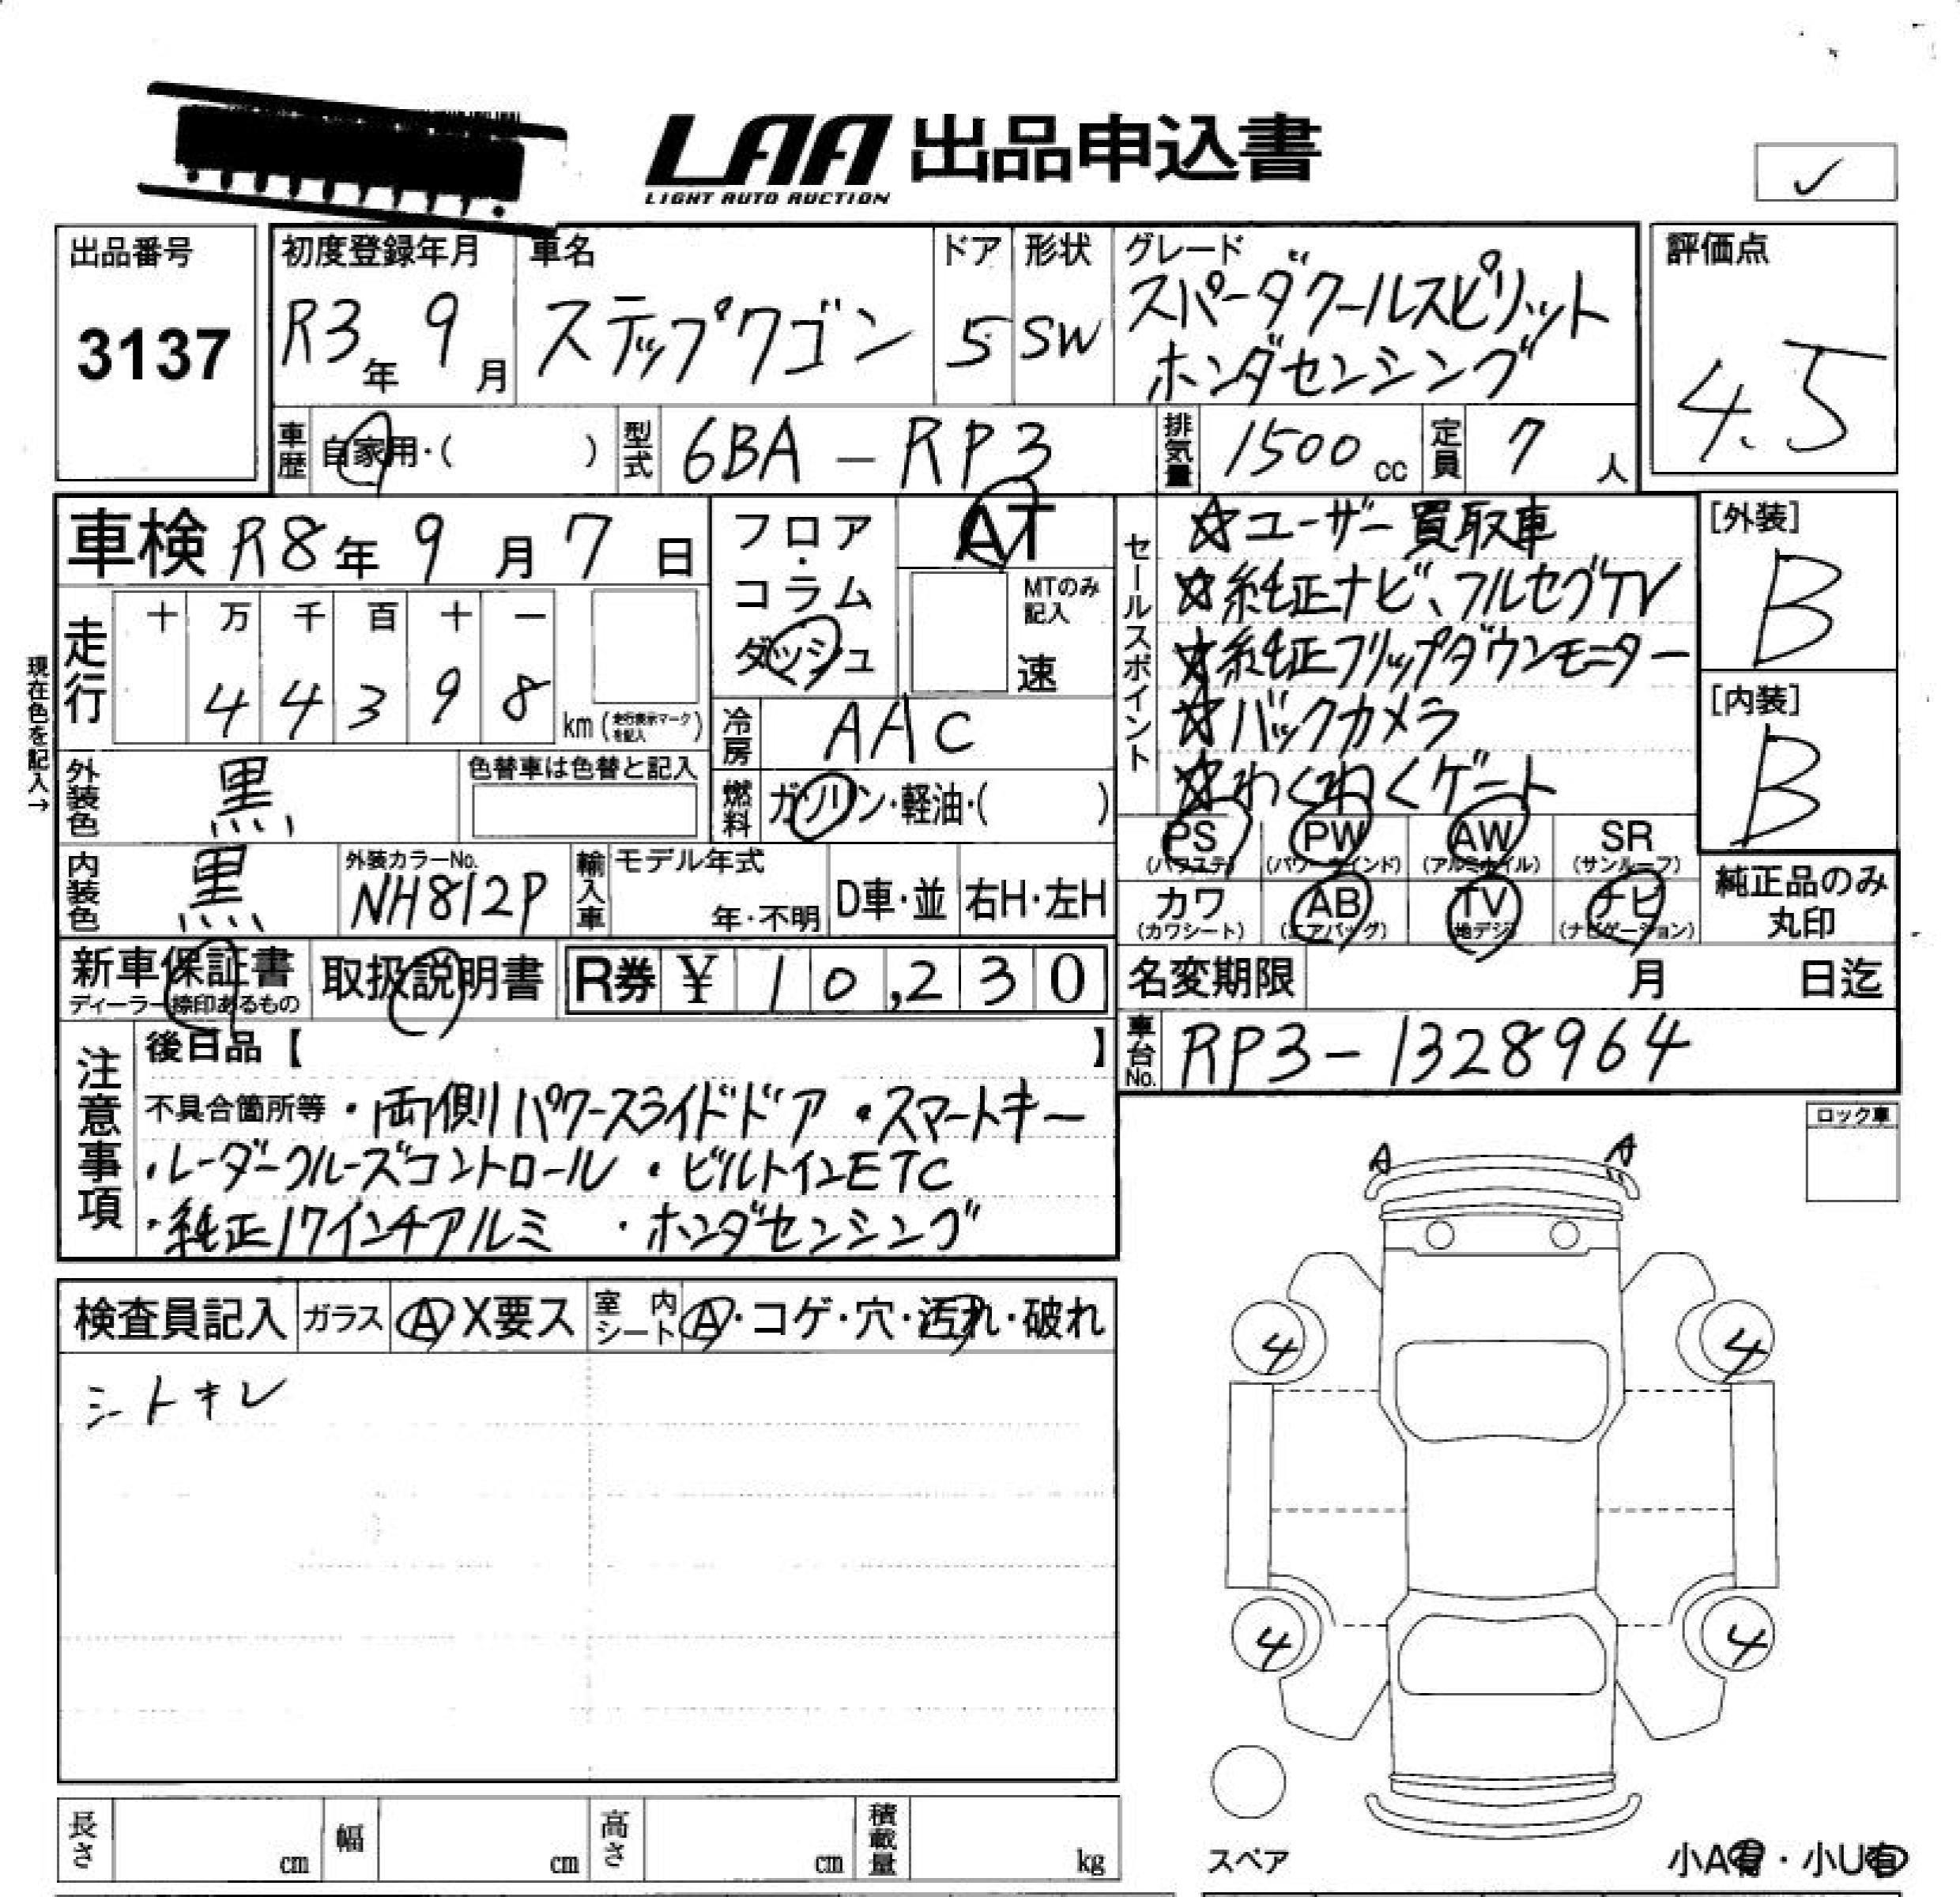 LAA 出品申込書
LIGHT AUTO AUCTION
出品番号
3137
初度登録年月
R3年 9月
車名
ステップワゴン
ドア
5
形状
SW
グレード
スパーダクールスピリット
ホンダセンシング
評価点
4.5
車歴 自家用・( )
型式 6BA-RP3
排気量 1500cc
定員 7人
車検 R8年 9月 7日
フロア・コラム
ダッシュ
AT
MTのみ記入
速
走行
十 万 千 百 十 一
4 4 3 9 8
km (走行表示マークを記入)
現在色を記入→
冷房 AAC
外装色 黒
色替車は色替と記入
燃料 ガソリン・軽油・( )
内装色 黒
外装カラーNo.
NH812P
輸入車
モデル年式
年・不明
D車・並
右H・左H
セールスポイント
☆ユーザー買取車
☆純正ナビ、フルセグTV
☆純正フリップダウンモニター
☆バックカメラ
☆わくわくゲート
[外装]
B
[内装]
B
PS (パワステ)
PW (パワーウインド)
AW (アルミホイル)
SR (サンルーフ)
カワ (カワシート)
AB (エアバッグ)
TV 地デジ
ナビ (ナビゲーション)
純正品のみ
丸印
新車保証書
ディーラー捺印あるもの
取扱説明書
R券 ¥ 10,230
名変期限 月 日迄
車台No. RP3-1328964
注意事項
後日品【 】
不具合箇所等 ・両側パワースライドドア ・スマートキー
・レーダークルーズコントロール ・ビルトインETC
・純正17インチアルミ ・ホンダセンシング
ロック車
A A
検査員記入
ガラス A X要ス
室内シート A・コゲ・穴・汚れ・破れ
シートキレ
4 4
4 4
スペア
小A有・小U有
長さ cm
幅 cm
高さ cm
積載量 kg